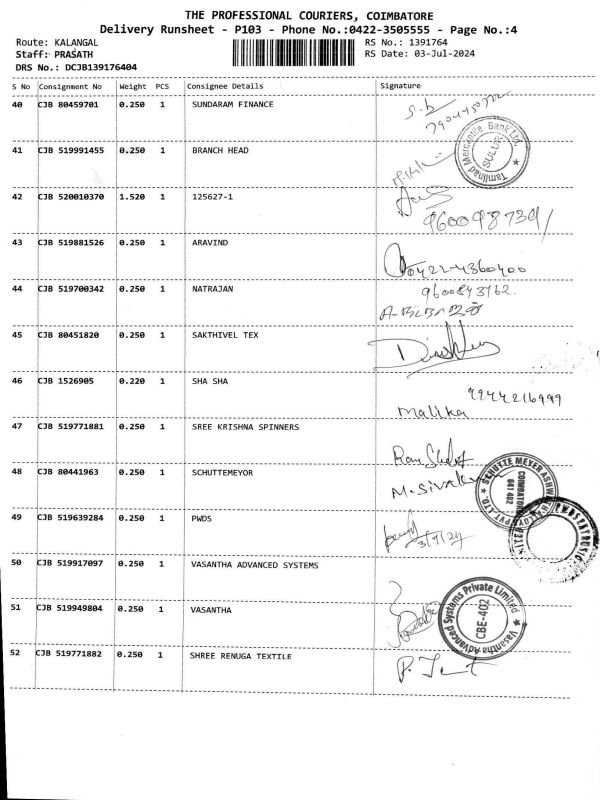 THE PROFESSIONAL COURIERS, COIMBATORE
Delivery Runsheet - P103 - Phone No.:0422-3505555 - Page No.:4
Route: KALANGAL RS No.: 1391764
Staff: PRASATH RS Date: 03-Jul-2024
DRS No.: DCJB139176404
S No Consignment No Weight PCS Consignee Details Signature
40 CJB 80459701 0.250 1 SUNDARAM FINANCE
41 CJB 519991455 0.250 1 BRANCH HEAD
Tamilnad Mercantile Bank Ltd.
SULUR
42 CJB 520010370 1.520 1 125627-1
43 CJB 519881526 0.250 1 ARAVIND
0422-4360400
44 CJB 519700342 0.250 1 NATRAJAN
9600843762.
45 CJB 80451820 0.250 1 SAKTHIVEL TEX
46 CJB 1526905 0.220 1 SHA SHA
9244216999
Malika
47 CJB 519771881 0.250 1 SREE KRISHNA SPINNERS
48 CJB 80441963 0.250 1 SCHUTTEMEYOR
SCHUTTE MEYER
COIMBATORE
641 402
49 CJB 519639284 0.250 1 PWDS
3/7/24
50 CJB 519917097 0.250 1 VASANTHA ADVANCED SYSTEMS
51 CJB 519949804 0.250 1 VASANTHA
Vasantha Advanced Systems Private Limited
CBE-402
52 CJB 519771882 0.250 1 SHREE RENUGA TEXTILE